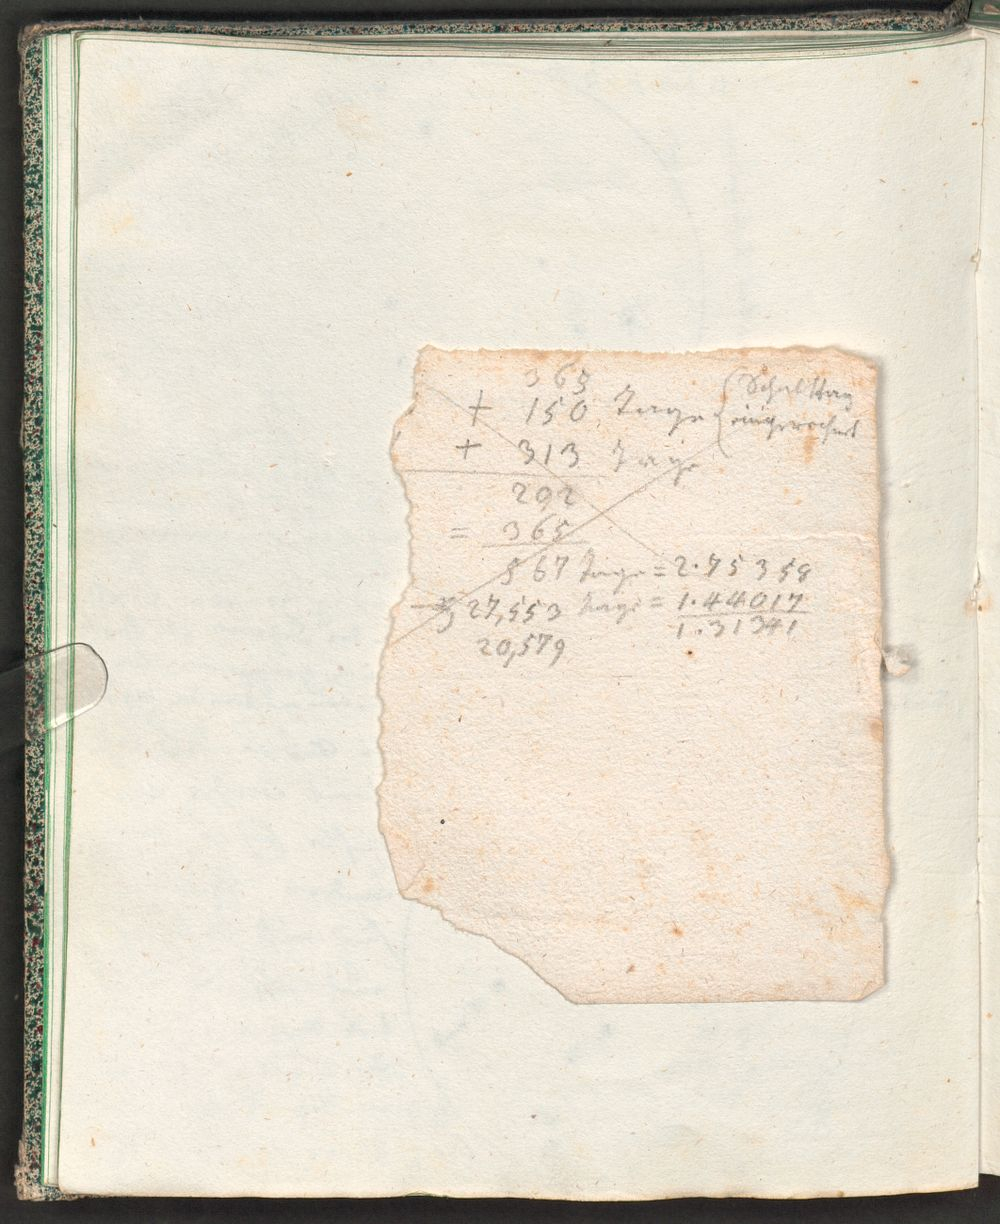 365
+ 150 Tage (Schalttag
(eingerechnet
+ 313 Tage
202
= 365
567 Tage = 2.75358
27,553 Tage = 1.44017
1.31341
20,579